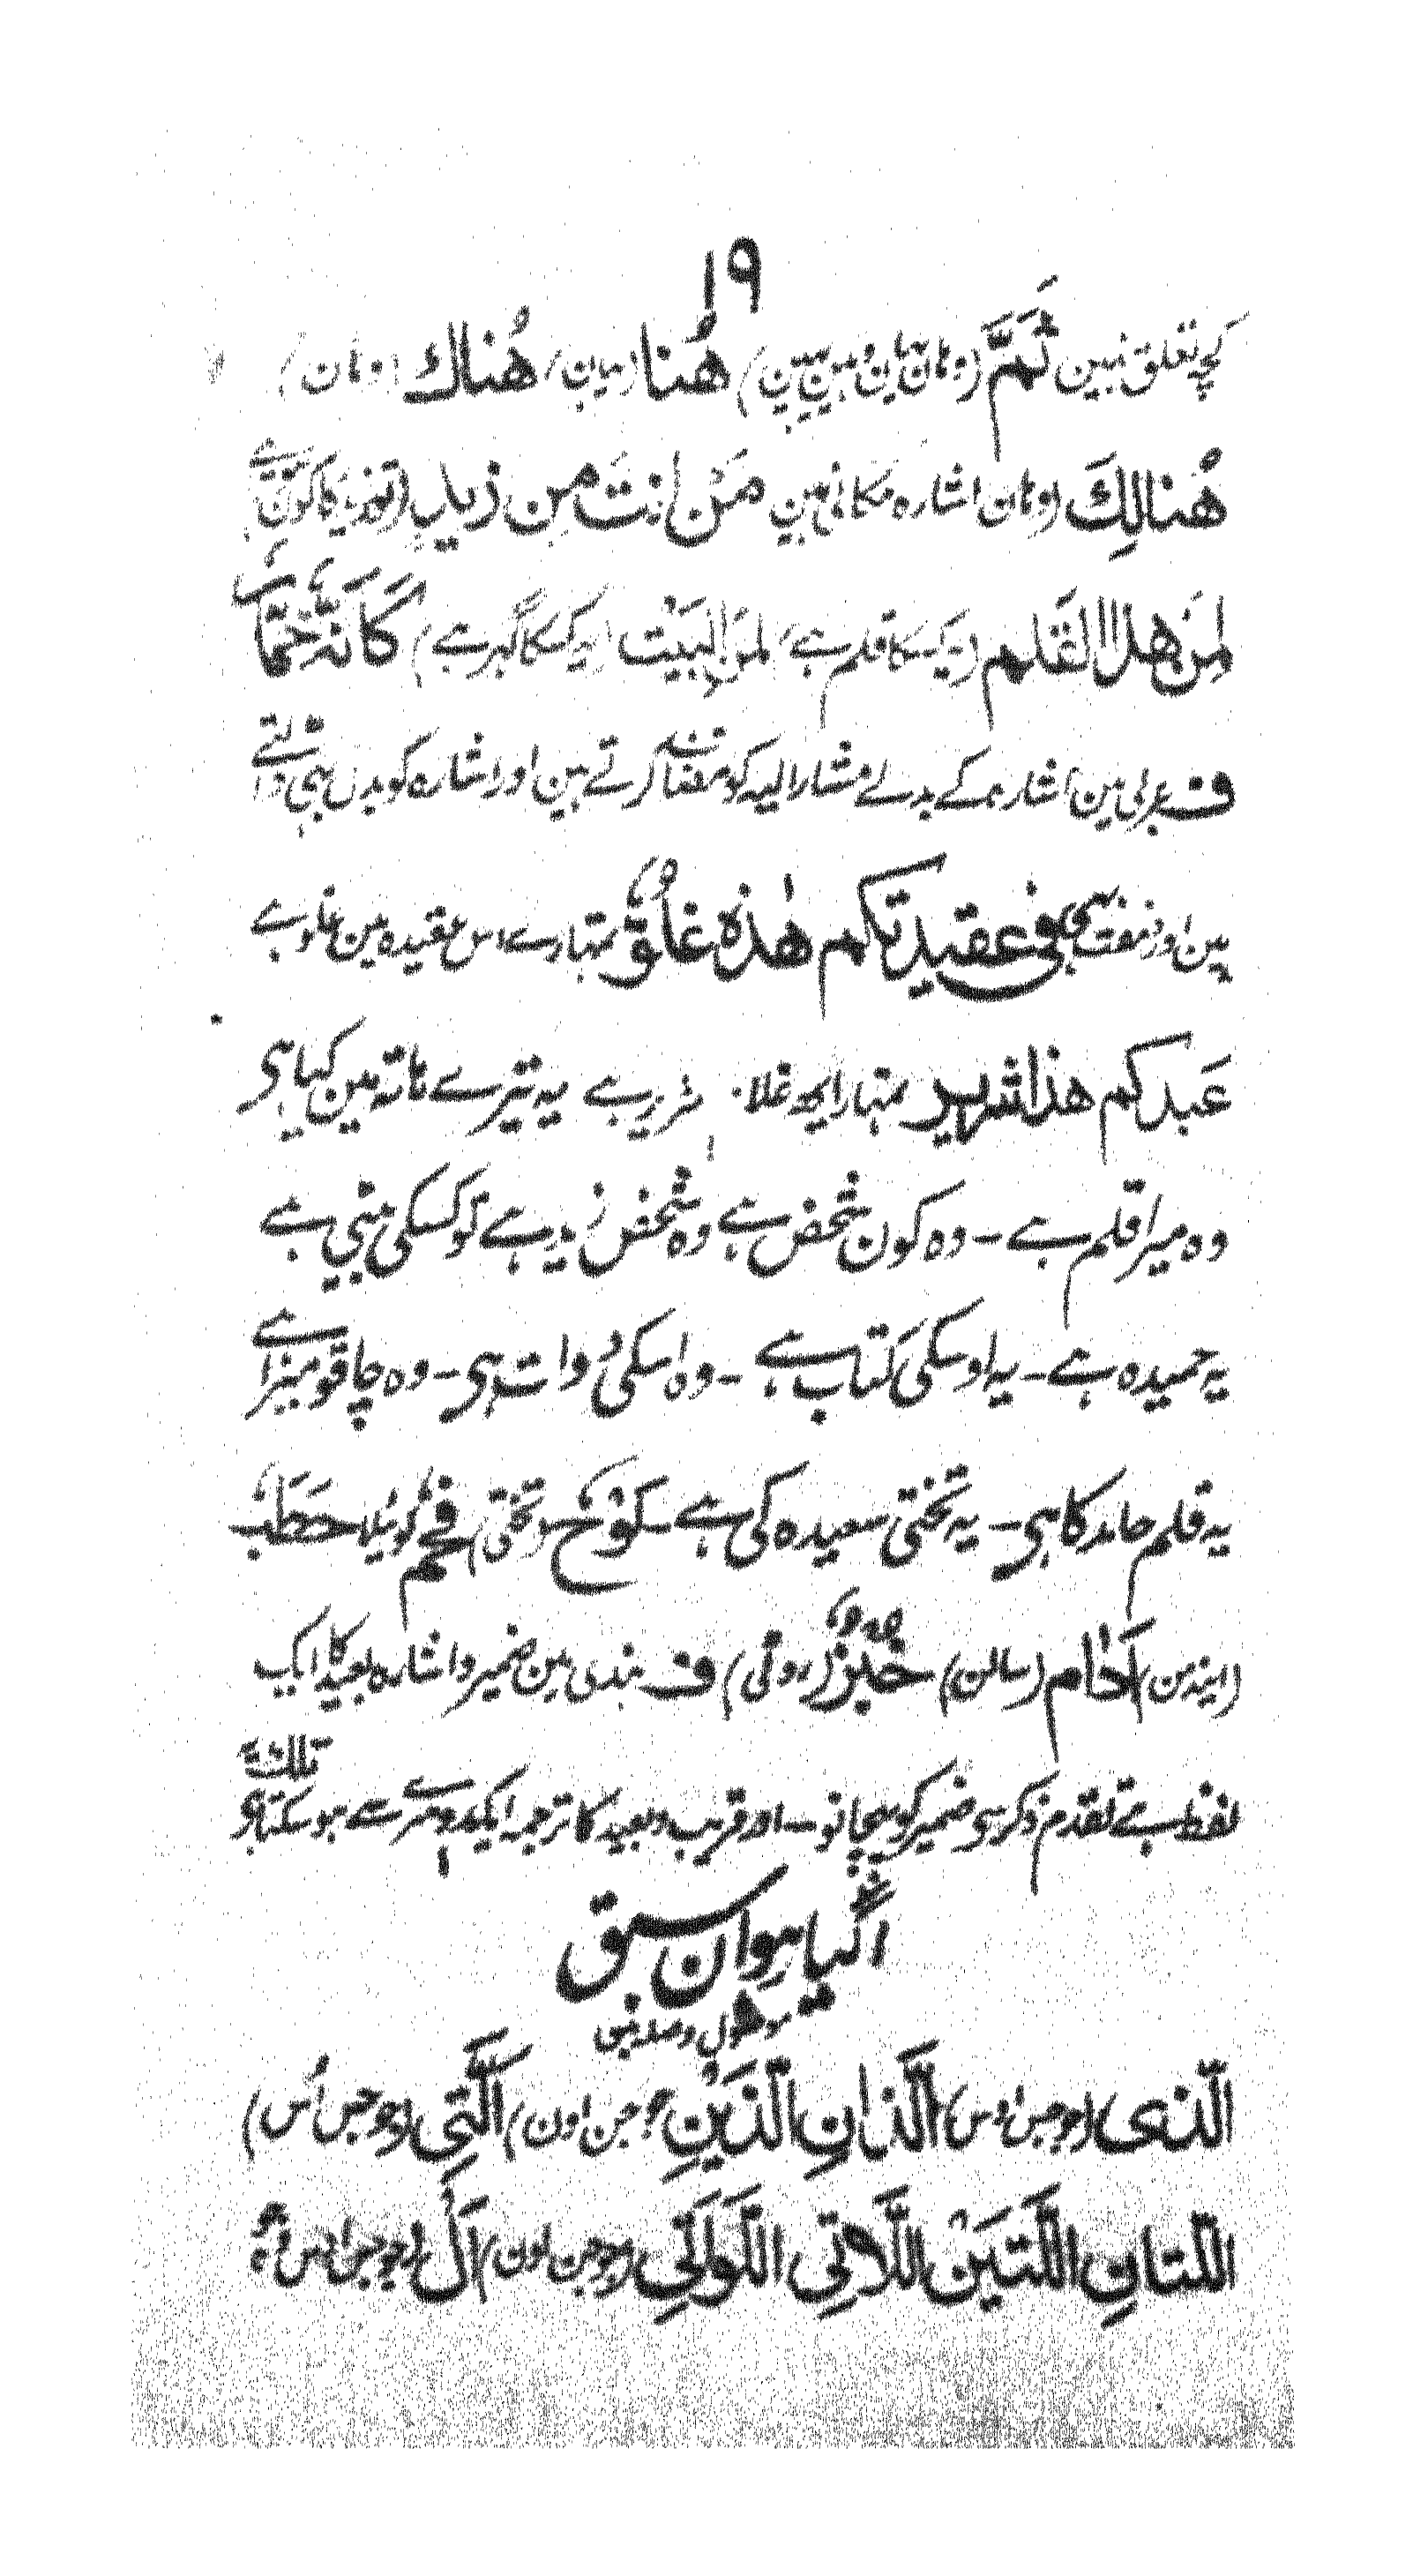 ۱۹
کچھ تعلق نہین ثَمَّ (وہان) ھُنا (یہان) ھُناك (وہان)
ھُنالِكَ (وہان) اشارہ مکانی ہین مَنْ اَنتَ مِن زیدٍ (توزید کا کون ہے)
لِمَنْ ھذا القَلَم (یہ کسکا قلم ہے) لمَنِ البَیْت (یہ کسکا گہر ہے) کَاَنَّہٗ
ف عربی مین اشارہ کے بدلے مشارالیہ کو مضاف کرتے ہین اور اشارہ کو بدل بہی
ہین اور صفت بہی فی عقیدتکم ھٰذہ غلوٌّ تمہارے اس عقیدہ مین غلو ہے
عَبدکم ھذا شریر تمہارا یہ غلام شریر ہے یہ تیرے ہاتہ مین کیا ہی
وہ میرا قلم ہے - وہ کون شخص ہے وہ شخص زید ہے تو کسکی بیٹی ہے
یہ حمیدہ ہے - یہ اوسکی کتاب ہے - وہ اسکی دوات ہی - وہ چاقو میرا ہے
یہ قلم حامد کا ہی - یہ تختی سعیدہ کی ہے - لَوْح (تختی) فحم کوئیلا حَطَبْ
(ایندہن) اَدَام (سالن) خبز (روٹی) ف ہندی مین ضمیر و اشارہ بعید کا ایک
لفظ ہے تقدم ذکر سی ضمیر کو پہچانو - اور قریب و بعید کا ترجمہ ایک دوسرے سے ہو سکتا ہی
اگیارہوان سبق
موصول وصلہ
الّذی (جو جس اوس) الَّذانِ الَّذَیْنِ جن اون) الَّتِی (جو جس اُس)
اللّتانِ اللَّتَیْنِ اللَّاتِی اللَّوَاتِی (جو جن اون) اَلْ (جو جس اس